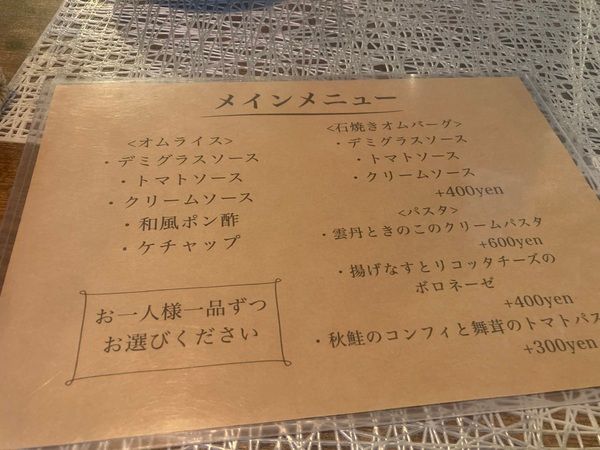 メインメニュー
<オムライス>
・デミグラスソース
・トマトソース
・クリームソース
・和風ポン酢
・ケチャップ
お一人様一品ずつ
お選びください
<石焼きオムバーグ>
・デミグラスソース
・トマトソース
・クリームソース
+400yen
<パスタ>
・雲丹ときのこのクリームパスタ
+600yen
・揚げなすとリコッタチーズの
ボロネーゼ
+400yen
・秋鮭のコンフィと舞茸のトマトパス
+300yen